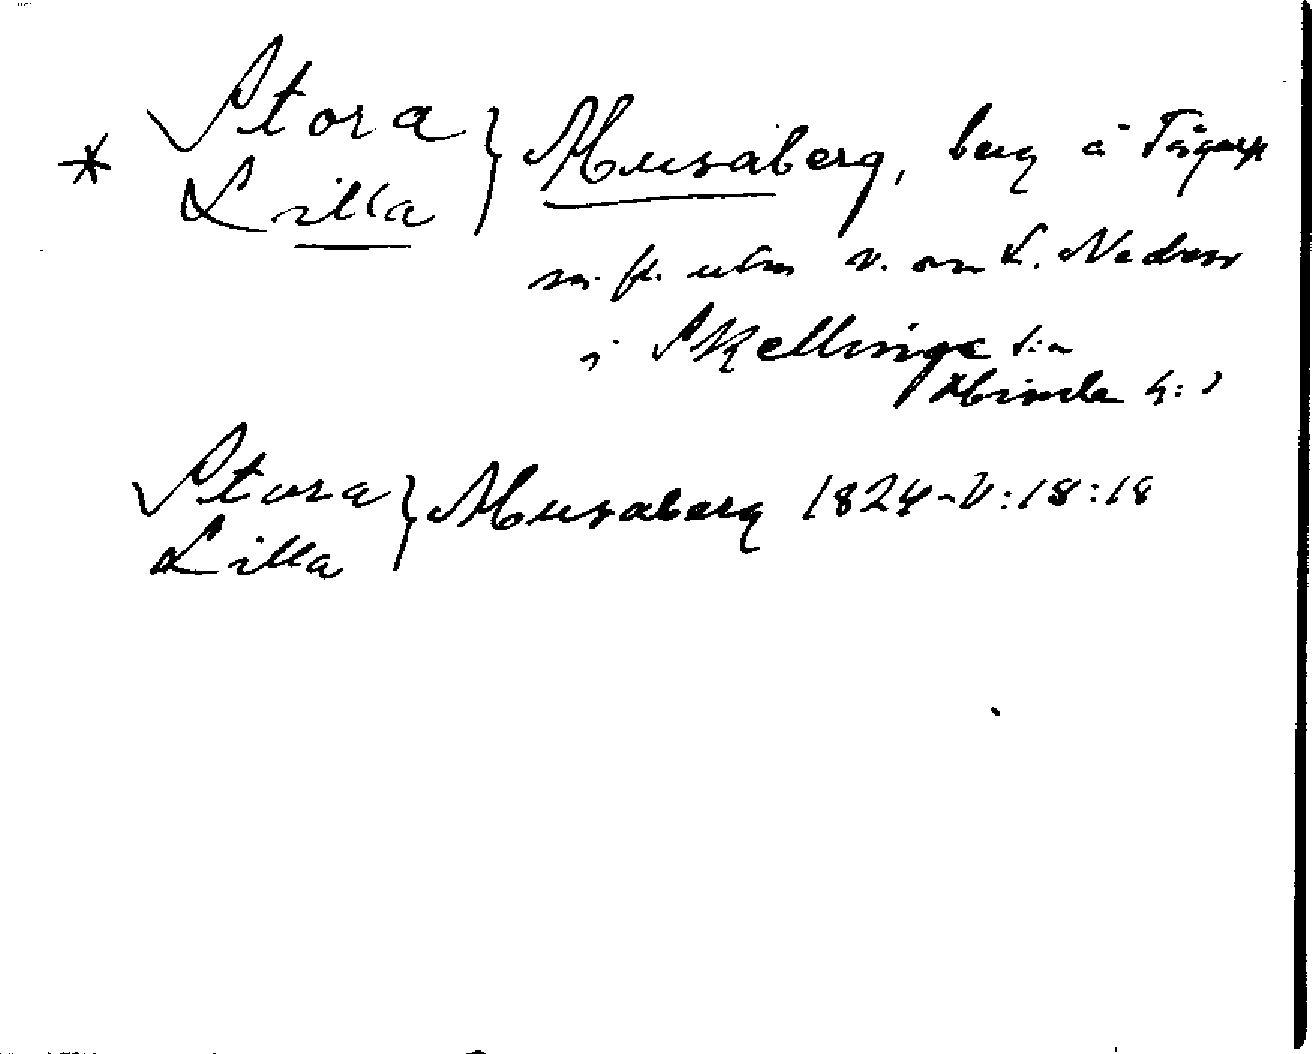 * Stora
Lilla } Musaberg, berg å Tågarp
m. fl. utm v. om L. Nedras
i Skällinge s:n
Himle h:d
Stora
Lilla } Musaberg 1824-V:18:18